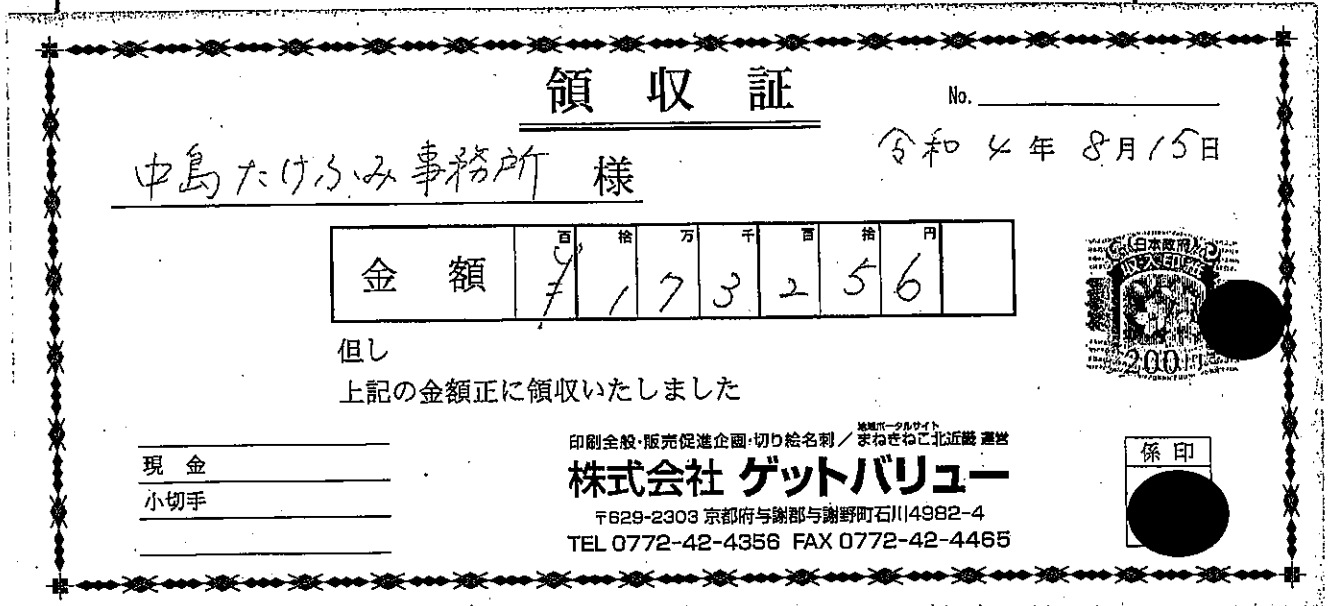 領収証
No.
令和4年8月15日
中島たけふみ事務所 様
金額 百 拾 万 千 百 拾 円
¥173256
但し
上記の金額正に領収いたしました
日本政府
200円
現金
小切手
地域ポータルサイト
印刷全般・販売促進企画・切り絵名刺／まねきねこ北近畿 運営
株式会社 ゲットバリュー
〒629-2303 京都府与謝郡与謝野町石川4982-4
TEL 0772-42-4356 FAX 0772-42-4465
係印